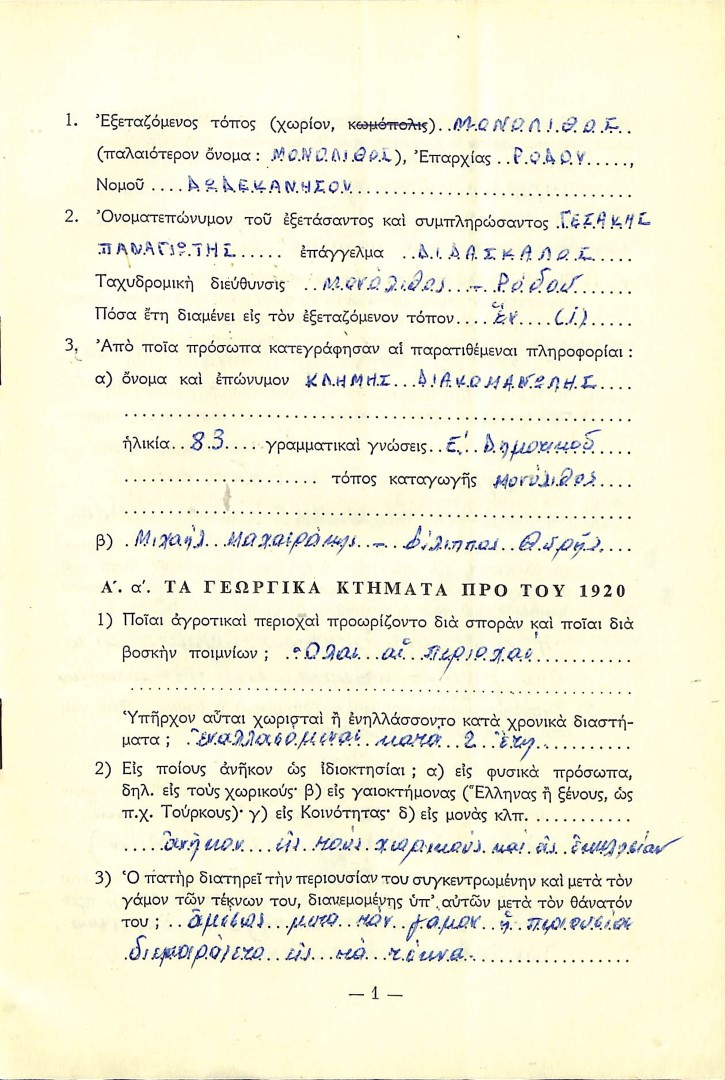 1. Ἐξεταζόμενος τόπος (χωρίον, κωμόπολις) ΜΟΝΟΛΙΘΟΣ
(παλαιότερον ὄνομα : ΜΟΝΟΛΙΘΟΣ), Ἐπαρχίας ΡΟΔΟΥ,
Νομοῦ ΔΩΔΕΚΑΝΗΣΟΥ
2. Ὀνοματεπώνυμον τοῦ ἐξετάσαντος καὶ συμπληρώσαντος ΤΣΕΣΑΚΗΣ
ΠΑΝΑΓΙΩΤΗΣ ἐπάγγελμα ΔΙΔΑΣΚΑΛΟΣ
Ταχυδρομικὴ διεύθυνσις Μονόλιθος - Ρόδου
Πόσα ἔτη διαμένει εἰς τὸν ἐξεταζόμενον τόπον Ἕν (1)
3. Ἀπὸ ποῖα πρόσωπα κατεγράφησαν αἱ παρατιθέμεναι πληροφορίαι :
α) ὄνομα καὶ ἐπώνυμον ΚΛΗΜΗΣ ΔΙΑΚΟΜΑΝΩΛΗΣ
ἡλικία 83 γραμματικαὶ γνώσεις Ε' Δημοτικοῦ
τόπος καταγωγῆς Μονόλιθος
β) Μιχαήλ Μαχαιράκης - Φίλιππος
Α'. α'. ΤΑ ΓΕΩΡΓΙΚΑ ΚΤΗΜΑΤΑ ΠΡΟ ΤΟΥ 1920
1) Ποῖαι ἀγροτικαὶ περιοχαὶ προωρίζοντο διὰ σπορὰν καὶ ποῖαι διὰ
βοσκὴν ποιμνίων ; Ὅλαι αἱ περιοχαί
Ὑπῆρχον αὗται χωρισταὶ ἢ ἐνηλλάσσοντο κατὰ χρονικὰ διαστή-
ματα ; Ἐναλλασόμεναι κατά 2 ἔτη
2) Εἰς ποίους ἀνῆκον ὡς ἰδιοκτησίαι ; α) εἰς φυσικὰ πρόσωπα,
δηλ. εἰς τοὺς χωρικούς· β) εἰς γαιοκτήμονας (Ἕλληνας ἢ ξένους, ὡς
π.χ. Τούρκους)· γ) εἰς Κοινότητας· δ) εἰς μονὰς κλπ.
ἀνῆκον εἰς τούς χωρικούς καί εἰς ἐκκλησίαν
3) Ὁ πατὴρ διατηρεῖ τὴν περιουσίαν του συγκεντρωμένην καὶ μετὰ τὸν
γάμον τῶν τέκνων του, διανεμομένης ὑπ' αὐτῶν μετὰ τὸν θάνατόν
του ; ἀμέσως μετά τόν γάμον ἡ περιουσία
διεμοιράζετο εἰς τά τέκνα.
— 1 —